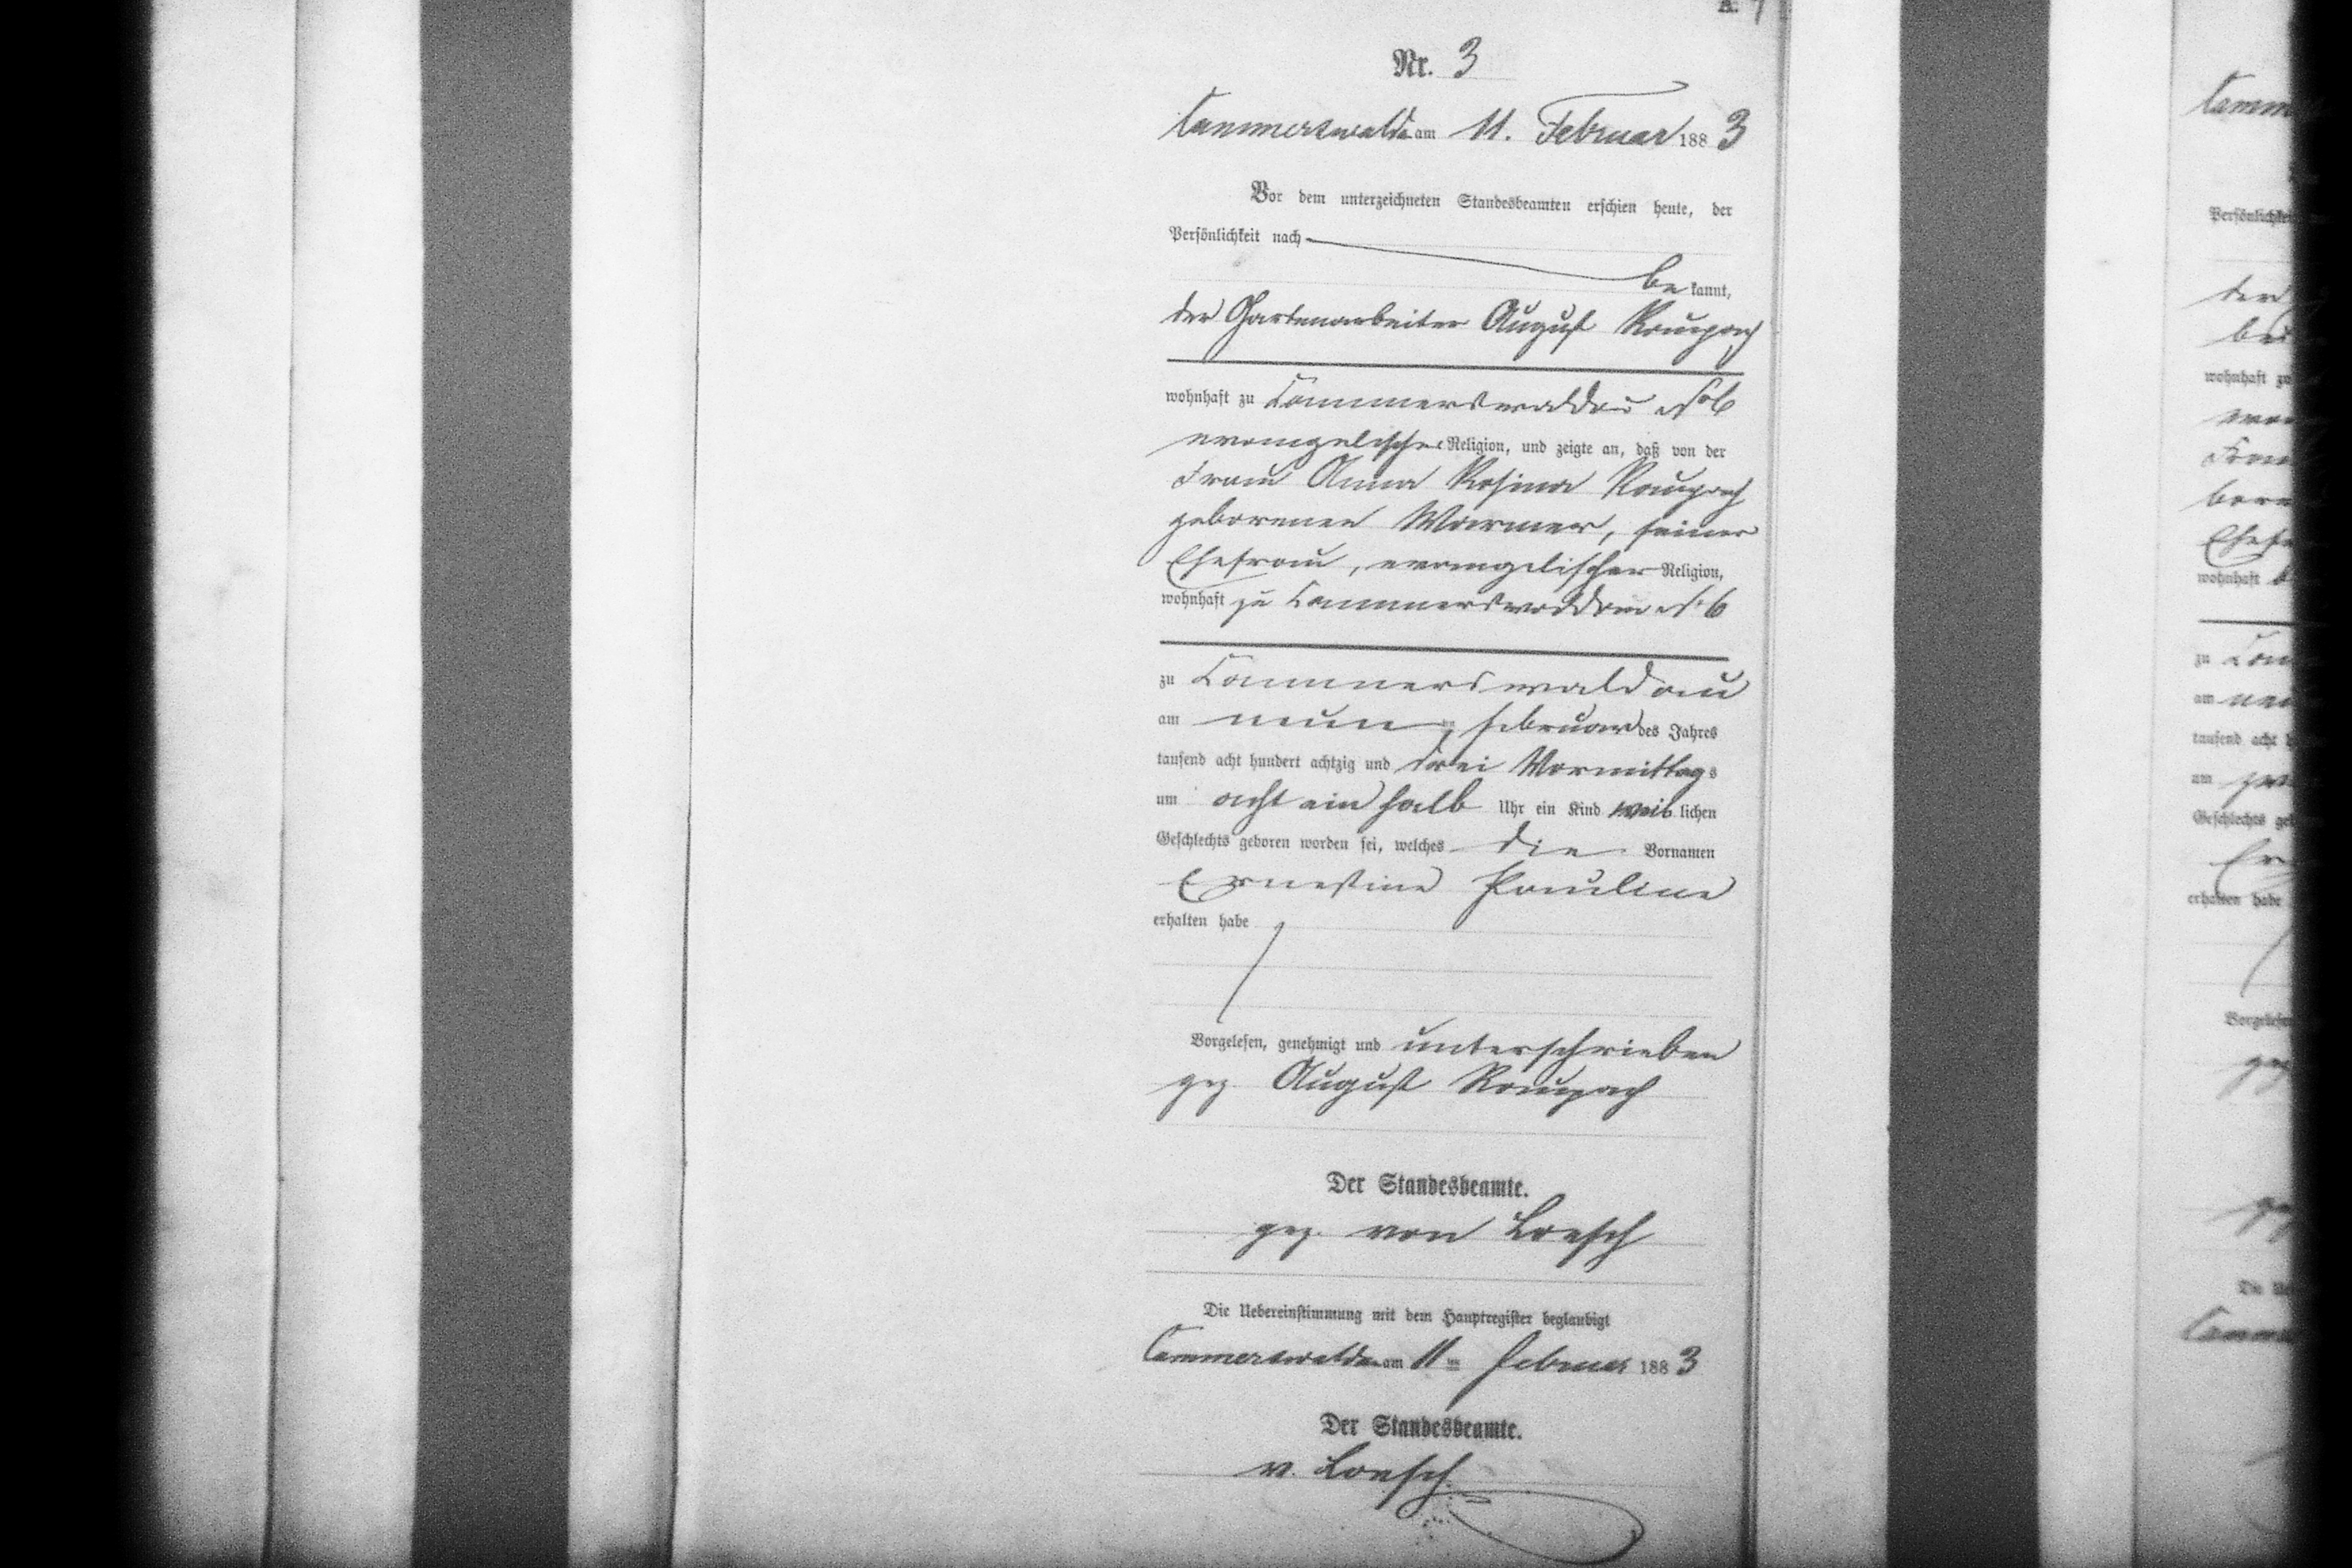 Nr. 3
Cammerswaldau am 11. Februar 1883
Vor dem unterzeichneten Standesbeamten erschien heute, der
Persönlichkeit nach
bekannt,
der Gartenarbeiter August Raupach
wohnhaft zu Cammerswaldau No 6
evangelischer Religion, und zeigte an, daß von der
Frau Anna Rosina Raupach
geborenen Warmer, seiner
Ehefrau, evangelischer Religion,
wohnhaft zu Cammerswaldau No 6
zu Cammerswaldau
am neunten Februar des Jahres
tausend acht hundert achtzig und drei Vormittags
um acht ein halb Uhr ein Kind weiblichen
Geschlechts geboren worden sei, welches die Vornamen
Ernestine Pauline
erhalten habe
Vorgelesen, genehmigt und unterschrieben
gez. August Raupach
Der Standesbeamte.
gez. von Loesch
Die Uebereinstimmung mit dem Hauptregister beglaubigt
Cammerswaldau am 11ten Februar 1883
Der Standesbeamte.
v. Loesch
wohnhaft
zu
am
tausend acht
um
Geschlechts
erhalten habe